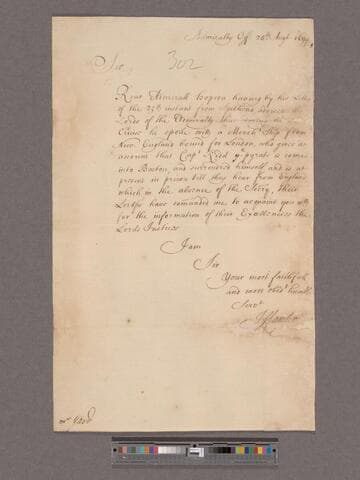 Admiralty Off 26th Augt 1699
Sir
302
Rear Admirall Hopson having by his Letter
of the 25th instant from Spithead
Lords of the Admiralty that
Cruise he spoke with a Mercht Ship from
New England bound for London, who gives an
account that Capt Kidd ye pyrate is come
into Boston, and surrendred himself and is at
present in prison till they hear from England
which in the absence of the Secry, their
Lordps have comanded me to acquaint you with
for the information of their Excellencies the
Lords Justices
I am
Sir
Your most faithfull
and most obedt humble
Servt
Mr Yard